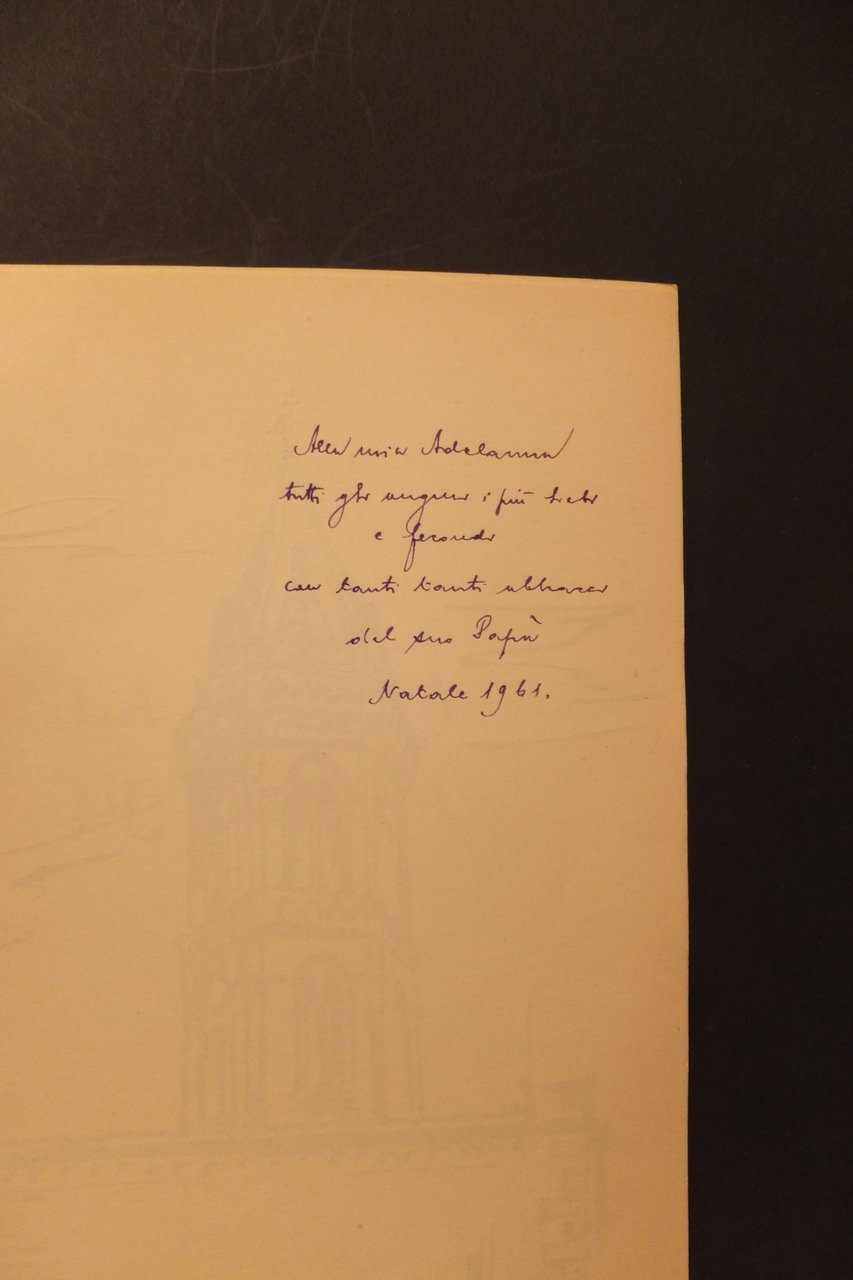 Alla mia Adelanna
tutti gli auguri i più lieti
e fecondi
con tanti tanti abbracci
del suo Papà
Natale 1961.